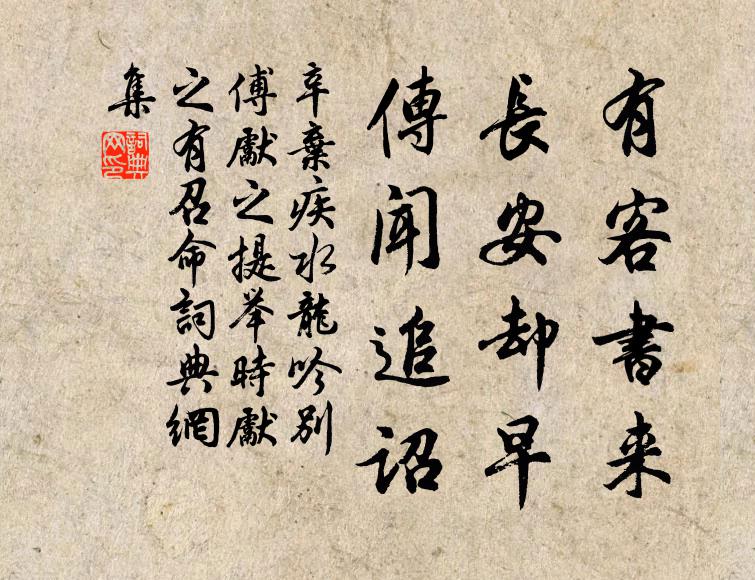 有客書来
長安却早
傳聞追詔
辛棄疾水龍吟別
傅獻之提举時獻
之有召命詞典網
集
詞典
网印